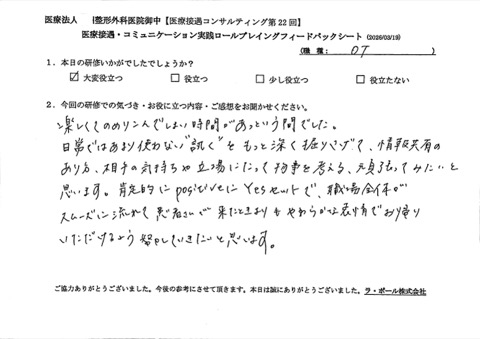 医療法人　 整形外科医院御中【医療接遇コンサルティング第22回】
医療接遇・コミュニケーション実践ロールプレイングフィードバックシート (2026/03/19)
(職種: OT )
1．本日の研修いかがでしたでしょうか？
☑ 大変役立つ　□ 役立つ　□ 少し役立つ　□ 役立たない
2．今回の研修での気づき・お役に立つ内容・ご感想をお聞かせください。
楽しくてのめりこんでしまい時間があっという間でした。
日常ではあまり使わない"訊く"をもっと深く掘り下げて、情報共有の
あり方、相手の気持ちや立場にたって物事を考える、頑張ってみたいと
思います。肯定的にpositiveにYesセットで、職場全体が
スムーズに流れて患者さんが来たときよりもやわらかな表情でお帰り
いただけるよう努力していきたいと思います。
ご協力ありがとうございました。今後の参考にさせて頂きます。本日は誠にありがとうございました。ラ・ポール株式会社